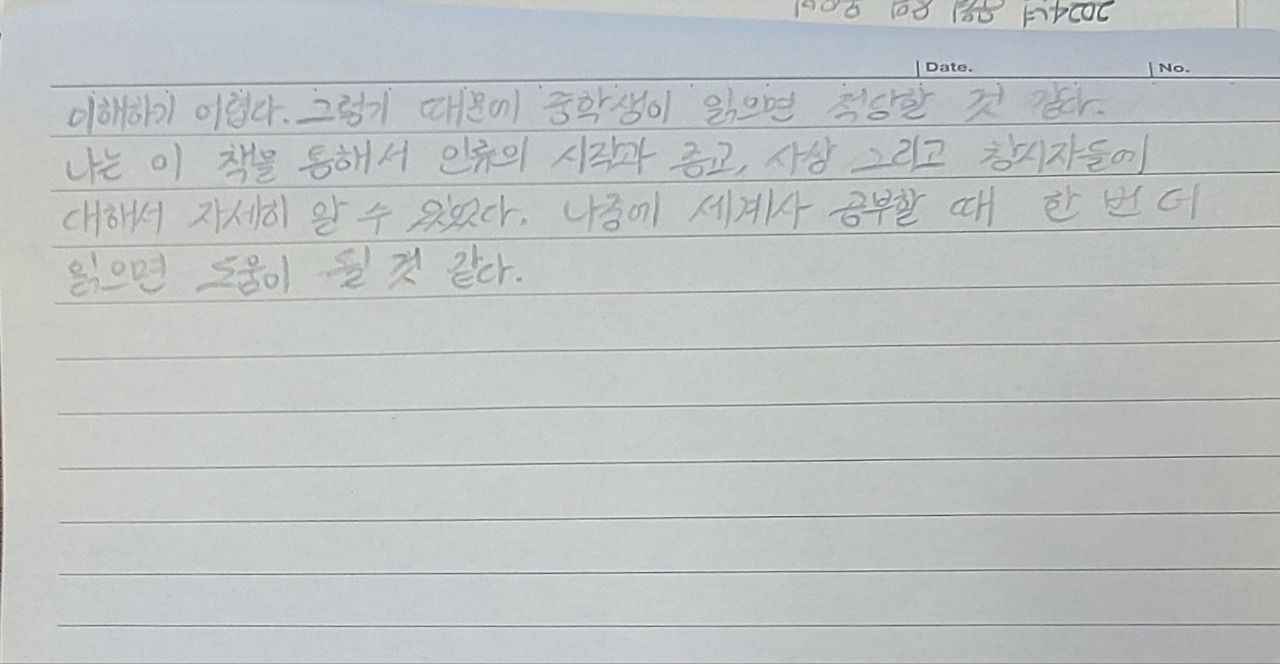 Date. No.
이해하기 어렵다. 그렇기 때문에 중학생이 읽으면 적당할 것 같다.
나는 이 책을 통해서 인류의 시작과 종교, 사상 그리고 창시자들에
대해서 자세히 알 수 있었다. 나중에 세계사 공부할 때 한 번 더
읽으면 도움이 될 것 같다.